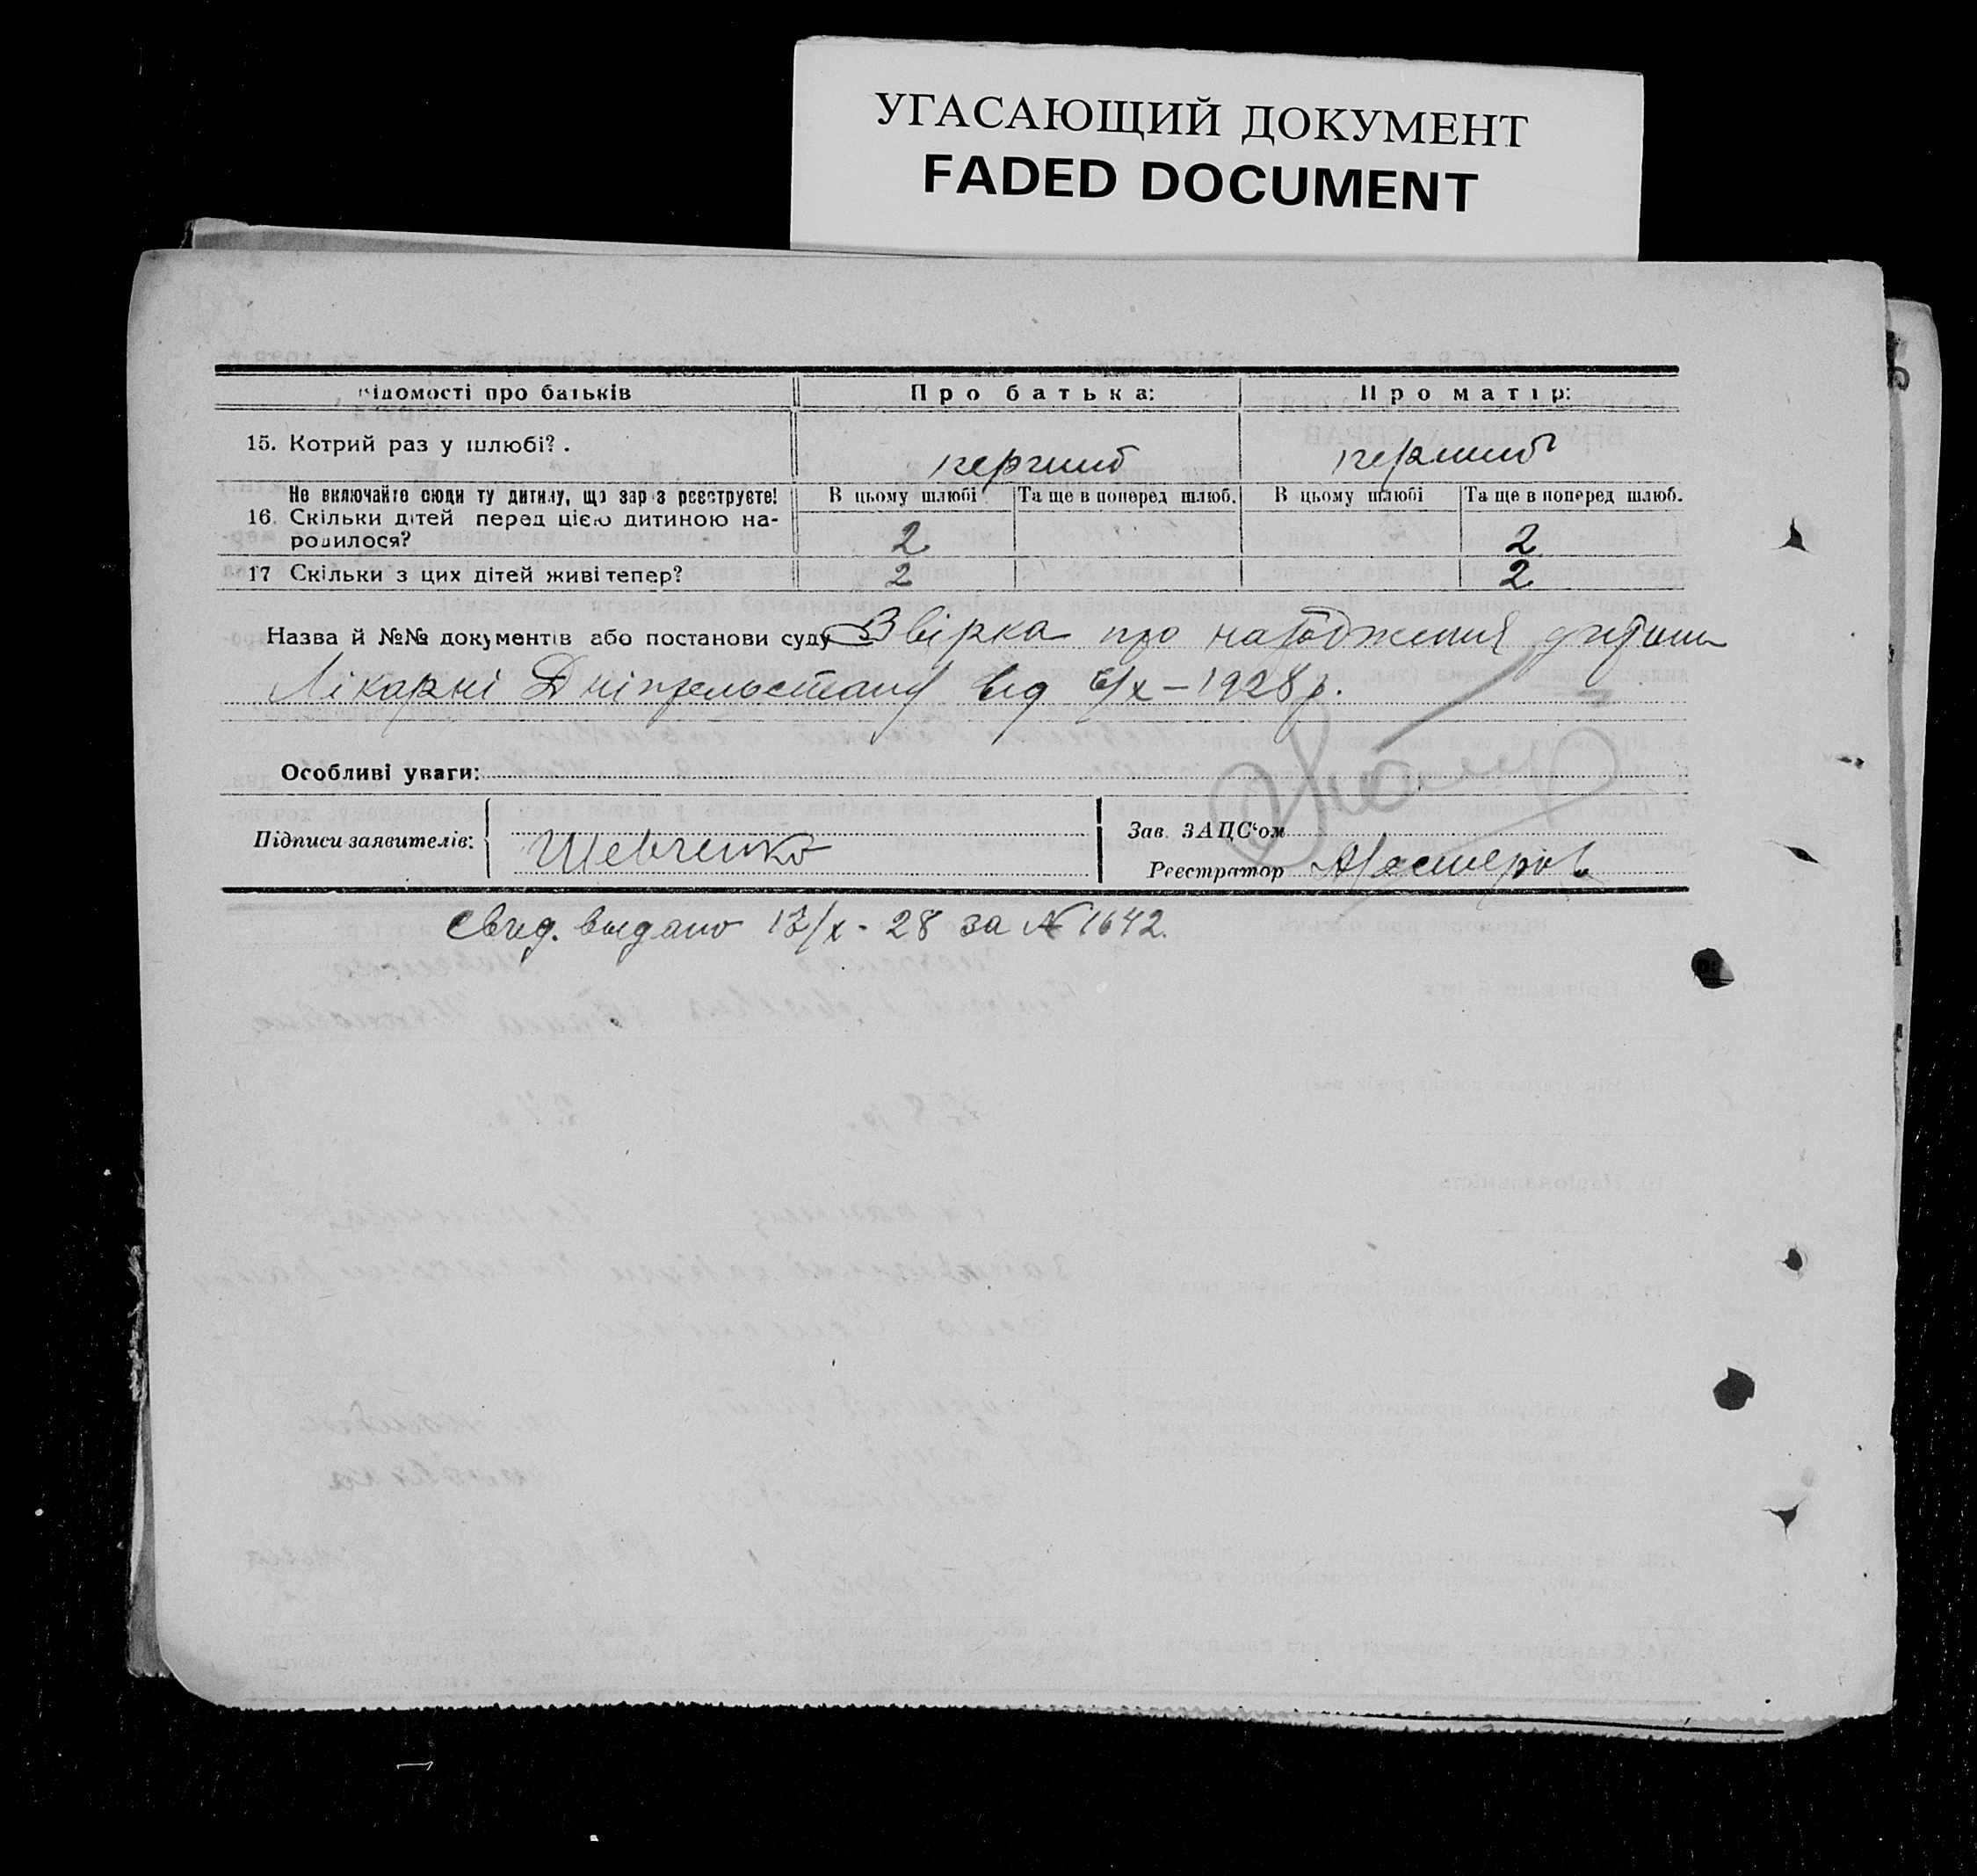 УГАСАЮЩИЙ ДОКУМЕНТ
FADED DOCUMENT
Відомості про батьків Про батька: Про матір:
15. Котрий раз у шлюбі? . перший перший
Не включайте сюди ту дитину, що зараз реєструєте! В цьому шлюбі Та ще в поперед шлюб. В цьому шлюбі Та ще в поперед шлюб.
16. Скільки дітей перед цією дитиною на-
родилося? 2 2
17 Скільки з цих дітей живі тепер? 2 2
Назва й №№ документів або постанови суду Звірка про народження дитини
Лікарні Дніпрельстану від 6/х – 1928 р.
Особливі уваги:
Підписи заявителів: Шевченко
Зав. ЗАЦС'ом
Реєстратор
Свид. выдано 13/х - 28 за № 1642.